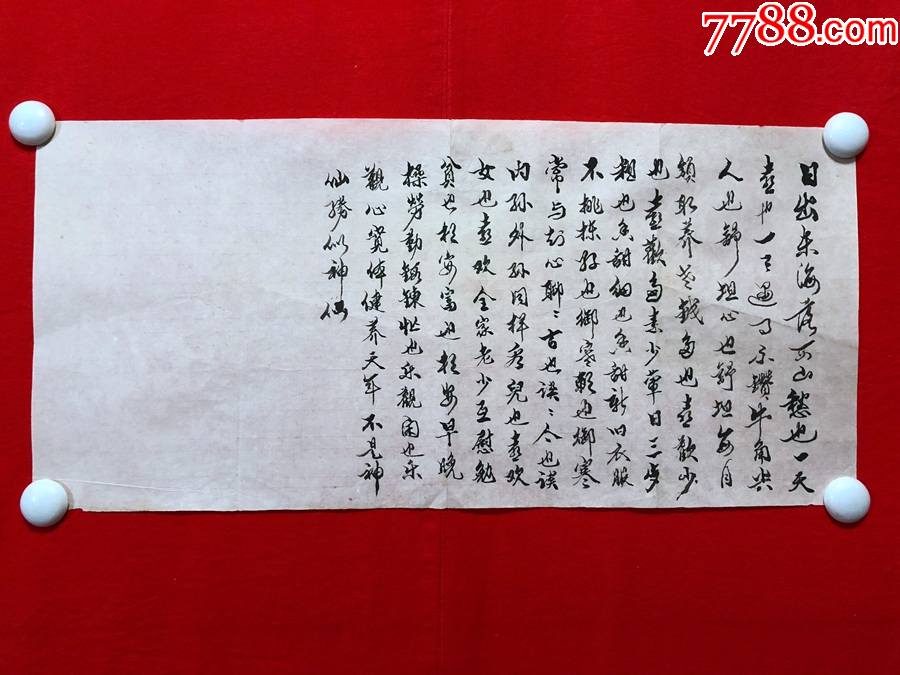 7788.com
日出东海落西山愁也一天
喜也一天遇事不鑽牛角尖
人也舒坦心也舒坦每月
領取养老錢多也喜歡少
也喜歡多素少葷日三歺
粗也香甜细也香甜新旧衣服
不挑揀好也御寒赖也御寒
常与知心聊〻古也谈〻今也谈
内孙外孙同样看兒也喜欢
女也喜欢全家老少互慰勉
貧也相安富也相安早晚
操勞勤鍛鍊忙也乐觀闲也乐
觀心寬体健养天年不是神
仙勝似神仙